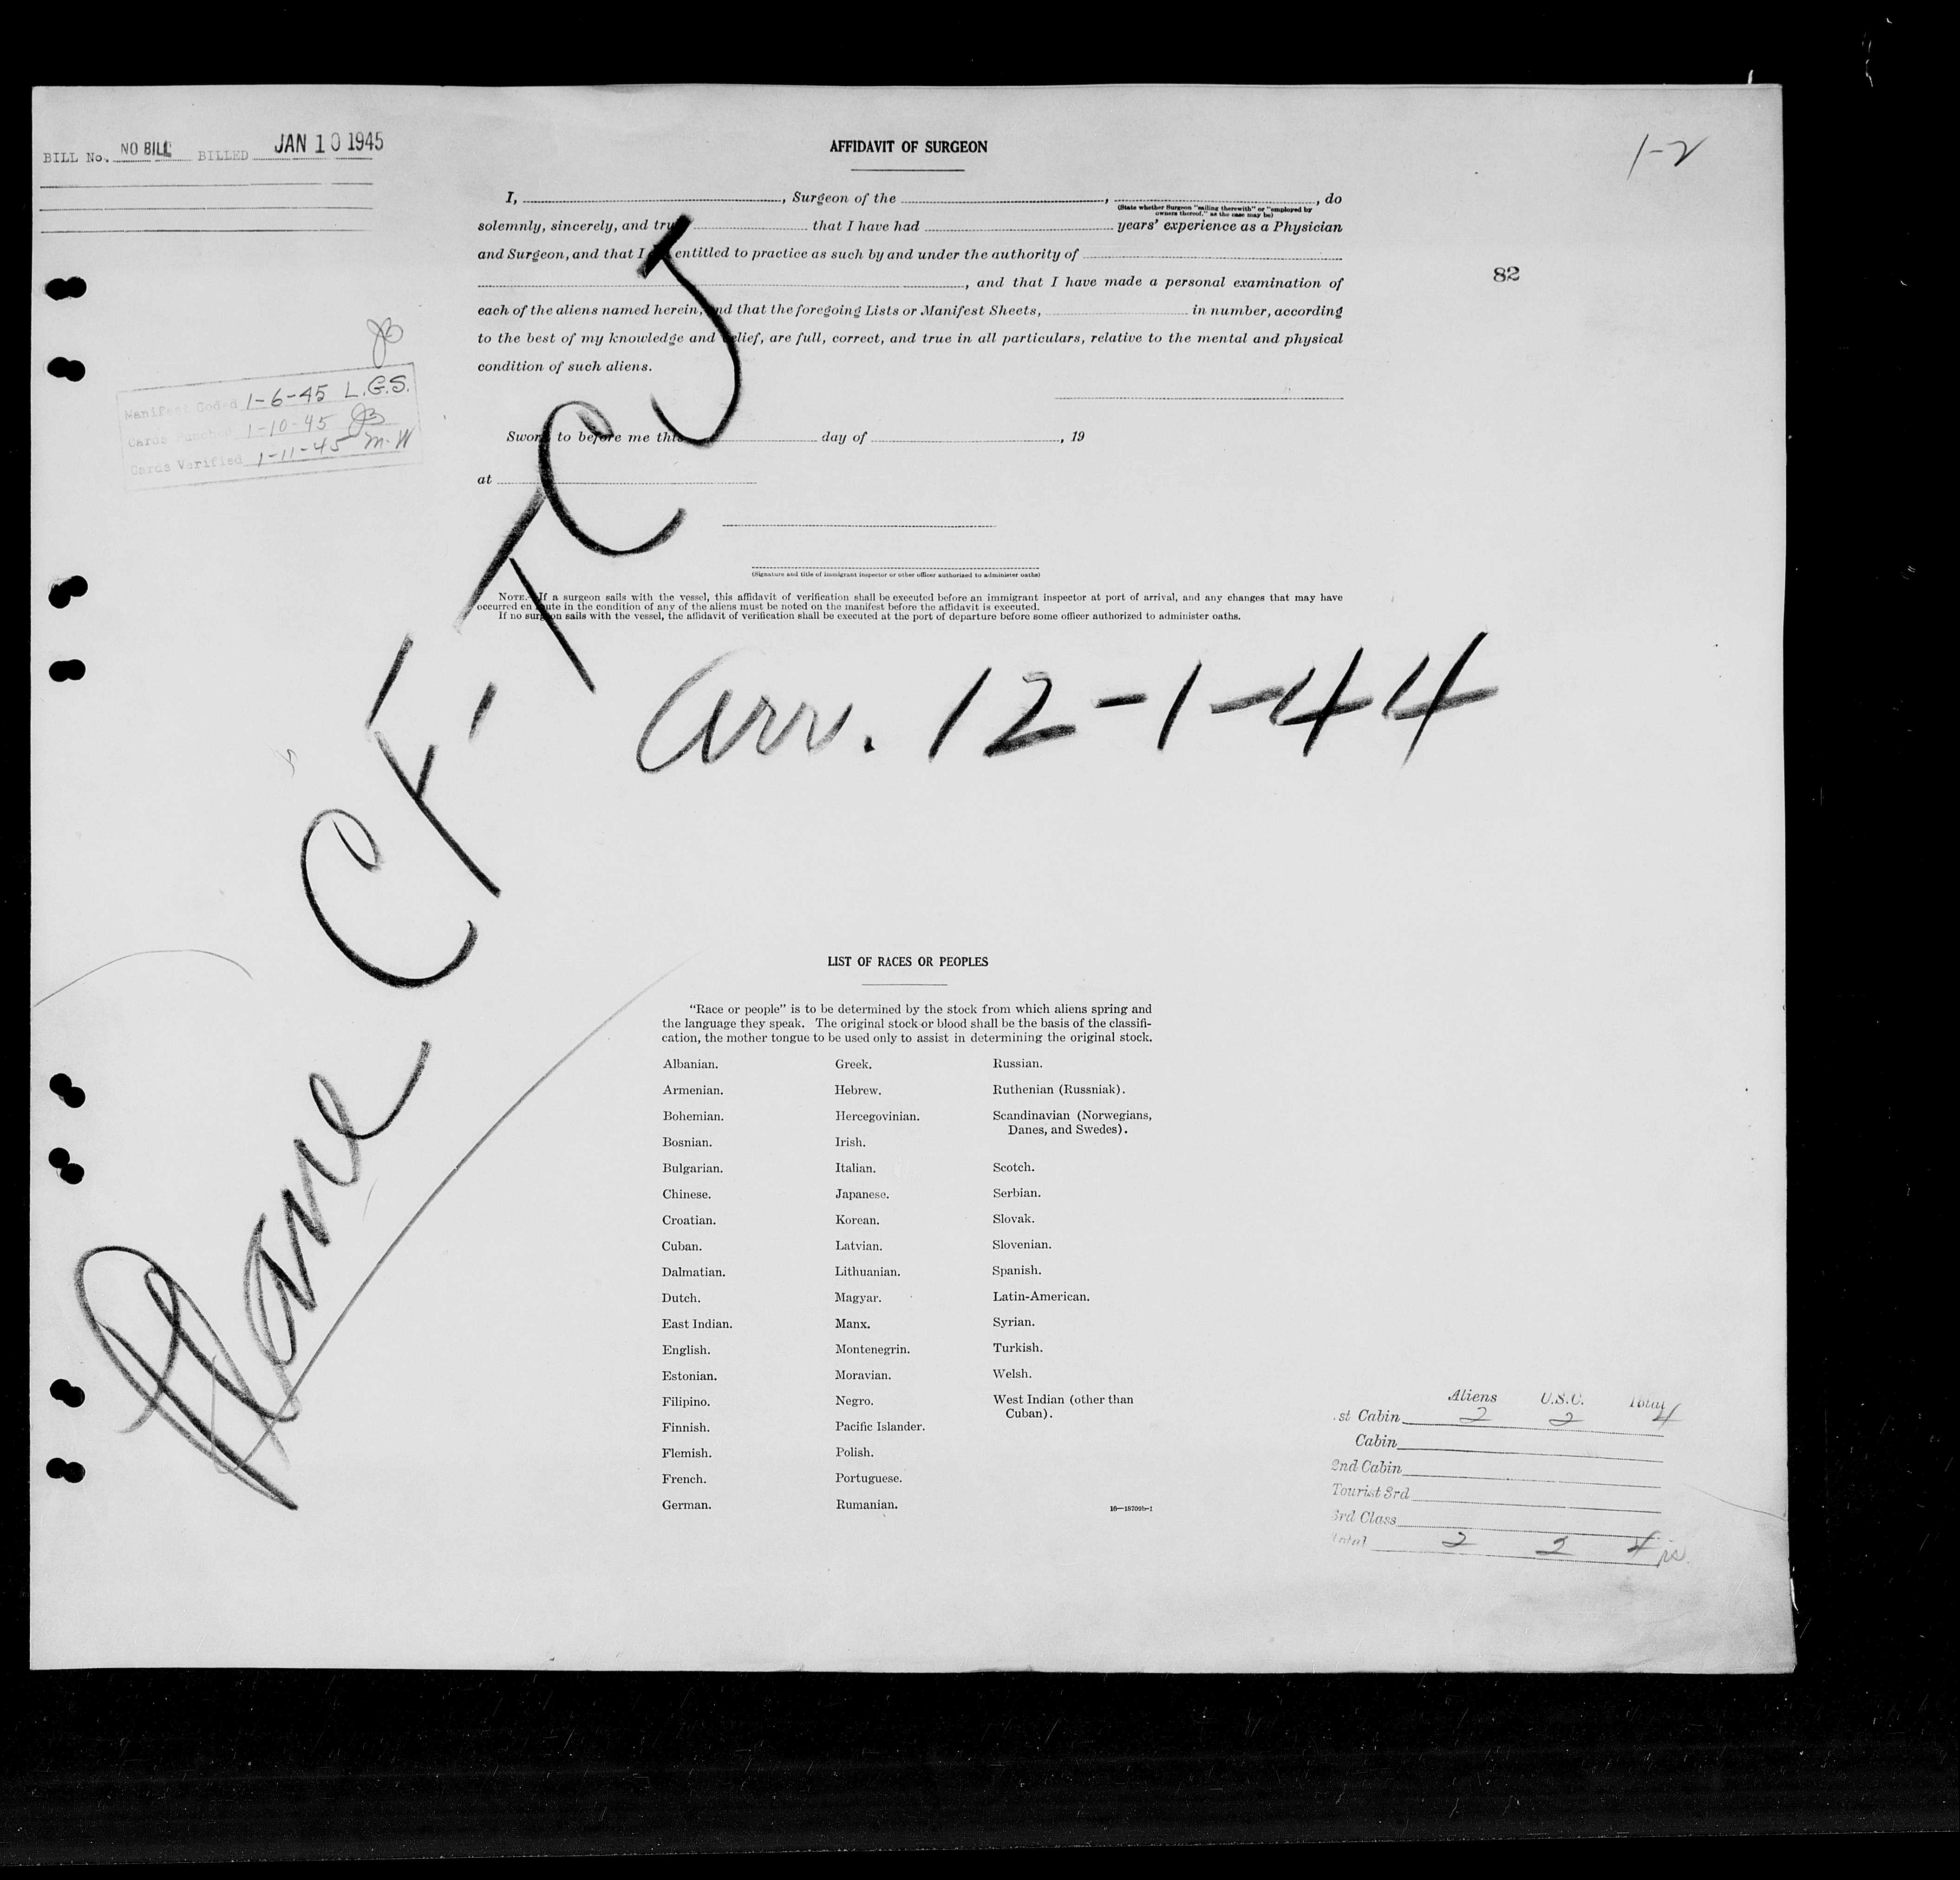 BILL No. NO BILL BILLED JAN 10 1945
1-2
82
AFFIDAVIT OF SURGEON
I, , Surgeon of the , , do
(State whether Surgeon "sailing therewith" or "employed by
owners thereof," as the case may be)
solemnly, sincerely, and tru that I have had years' experience as a Physician
and Surgeon, and that I entitled to practice as such by and under the authority of
, and that I have made a personal examination of
each of the aliens named herein, and that the foregoing Lists or Manifest Sheets, in number, according
to the best of my knowledge and belief, are full, correct, and true in all particulars, relative to the mental and physical
condition of such aliens.
JB
Manifest Coded 1-6-45 L.G.S.
Cards Punched 1-10-45 JB
Cards Verified 1-11-45 M.W
Sworn to before me this day of , 19
at
(Signature and title of immigrant inspector or other officer authorized to administer oaths)
NOTE.—If a surgeon sails with the vessel, this affidavit of verification shall be executed before an immigrant inspector at port of arrival, and any changes that may have
occurred en route in the condition of any of the aliens must be noted on the manifest before the affidavit is executed.
If no surgeon sails with the vessel, the affidavit of verification shall be executed at the port of departure before some officer authorized to administer oaths.
Plane CF-TCJ
Arr. 12-1-44
LIST OF RACES OR PEOPLES
"Race or people" is to be determined by the stock from which aliens spring and
the language they speak. The original stock or blood shall be the basis of the classifi-
cation, the mother tongue to be used only to assist in determining the original stock.
Albanian.
Armenian.
Bohemian.
Bosnian.
Bulgarian.
Chinese.
Croatian.
Cuban.
Dalmatian.
Dutch.
East Indian.
English.
Estonian.
Filipino.
Finnish.
Flemish.
French.
German.
Greek.
Hebrew.
Hercegovinian.
Irish.
Italian.
Japanese.
Korean.
Latvian.
Lithuanian.
Magyar.
Manx.
Montenegrin.
Moravian.
Negro.
Pacific Islander.
Polish.
Portuguese.
Rumanian.
Russian.
Ruthenian (Russniak).
Scandinavian (Norwegians,
Danes, and Swedes).
Scotch.
Serbian.
Slovak.
Slovenian.
Spanish.
Latin-American.
Syrian.
Turkish.
Welsh.
West Indian (other than
Cuban).
16—18709b-1
Aliens U.S.C. Total
st Cabin 2 2 4
Cabin
2nd Cabin
Tourist 3rd
3rd Class
Total 2 2 4